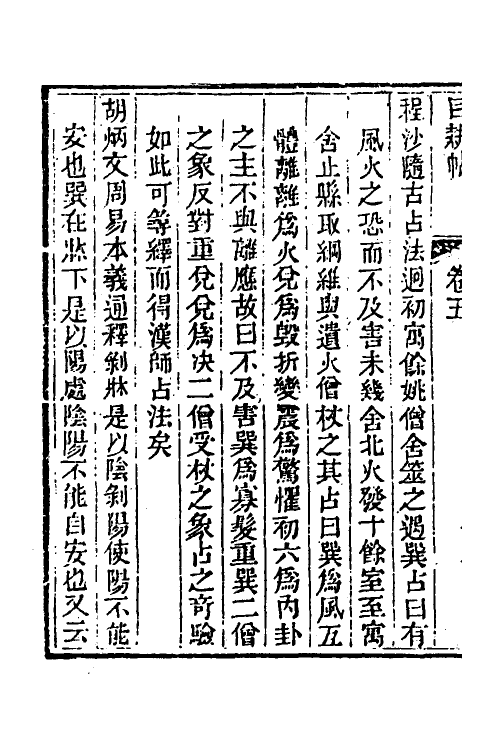 目耕帖 卷五
程沙隨古占法迥初寓餘姚僧舍筮之遇巽占曰有
風火之恐而不及害未幾舍北火發十餘室至寓
舍止縣取綱維與遺火僧杖之其占曰巽爲風互
體離離爲火兌爲毁折變震爲驚懼初六爲內卦
之主不與離應故曰不及害巽爲寡髮重巽二僧
之象反對重兌兌爲决二僧受杖之象占之奇驗
如此可等繹而得漢師占法矣
胡炳文周易本義通釋剝牀是以陰剝陽使陽不能
安也巽在牀下是以陽處陰陽不能自安也又云